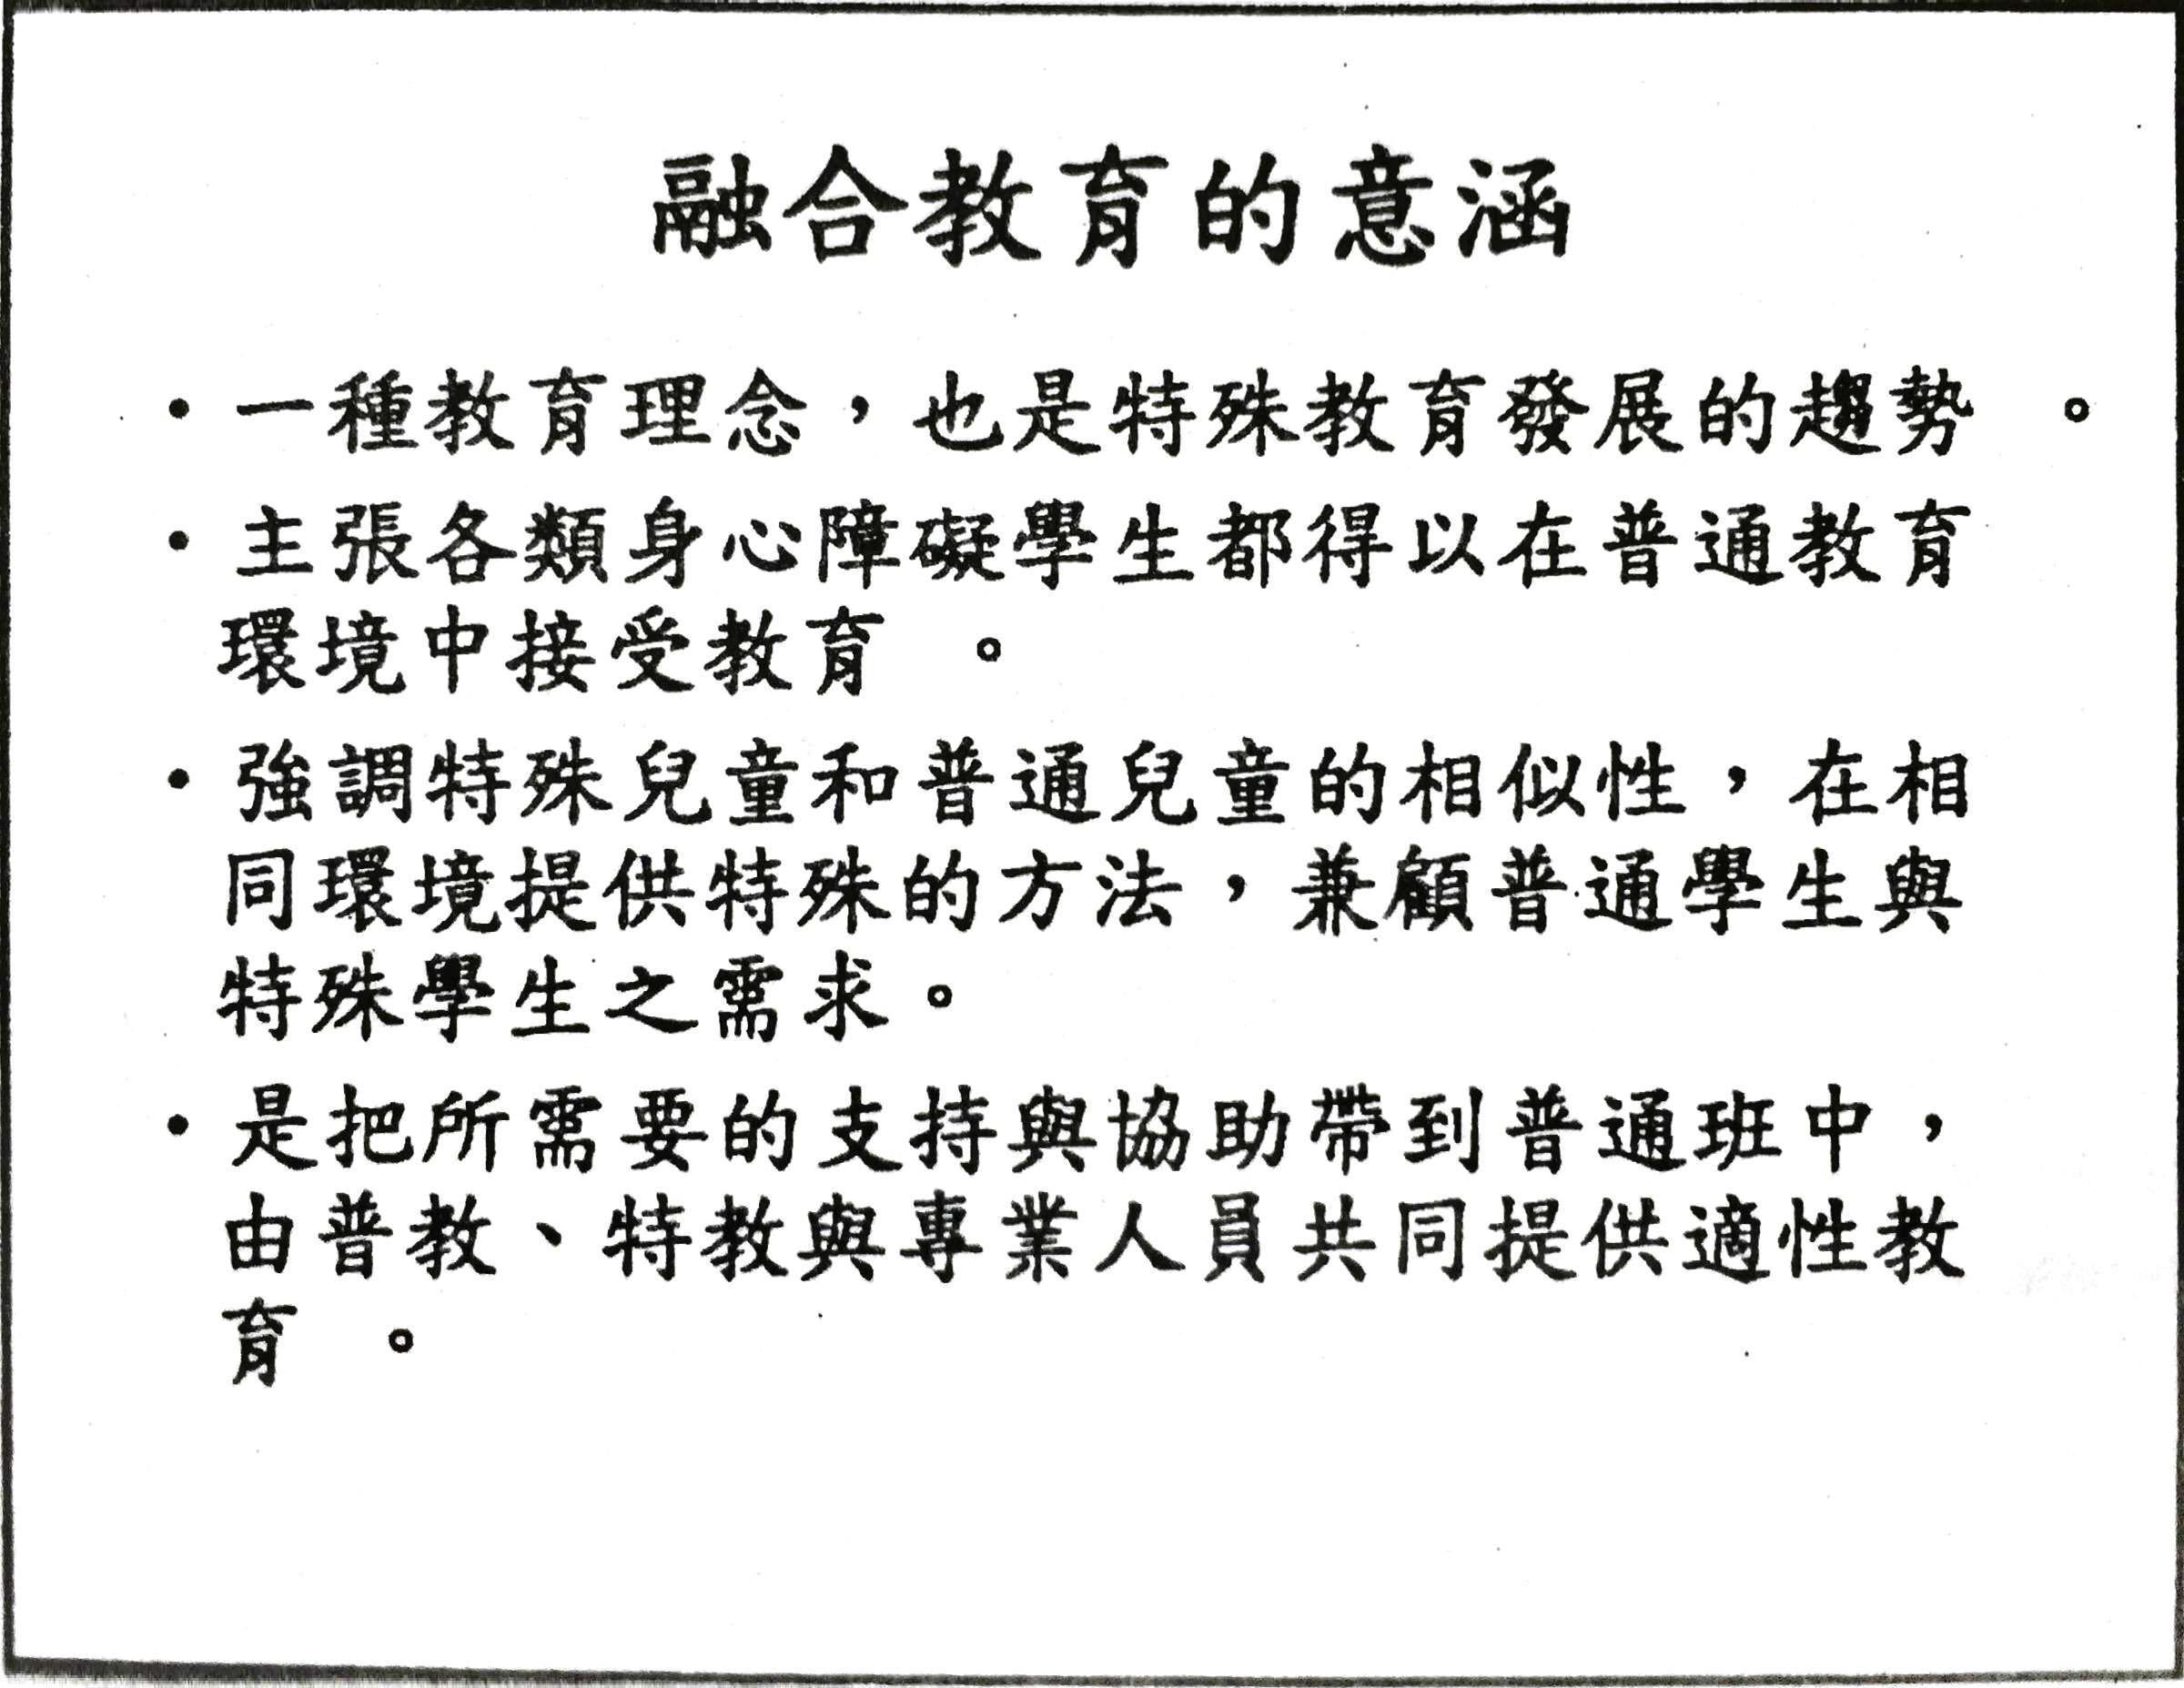 融合教育的意涵
・一種教育理念，也是特殊教育發展的趨勢 。
・主張各類身心障礙學生都得以在普通教育
環境中接受教育 。
・強調特殊兒童和普通兒童的相似性，在相
同環境提供特殊的方法，兼顧普通學生與
特殊學生之需求。
・是把所需要的支持與協助帶到普通班中，
由普教、特教與專業人員共同提供適性教
育 。